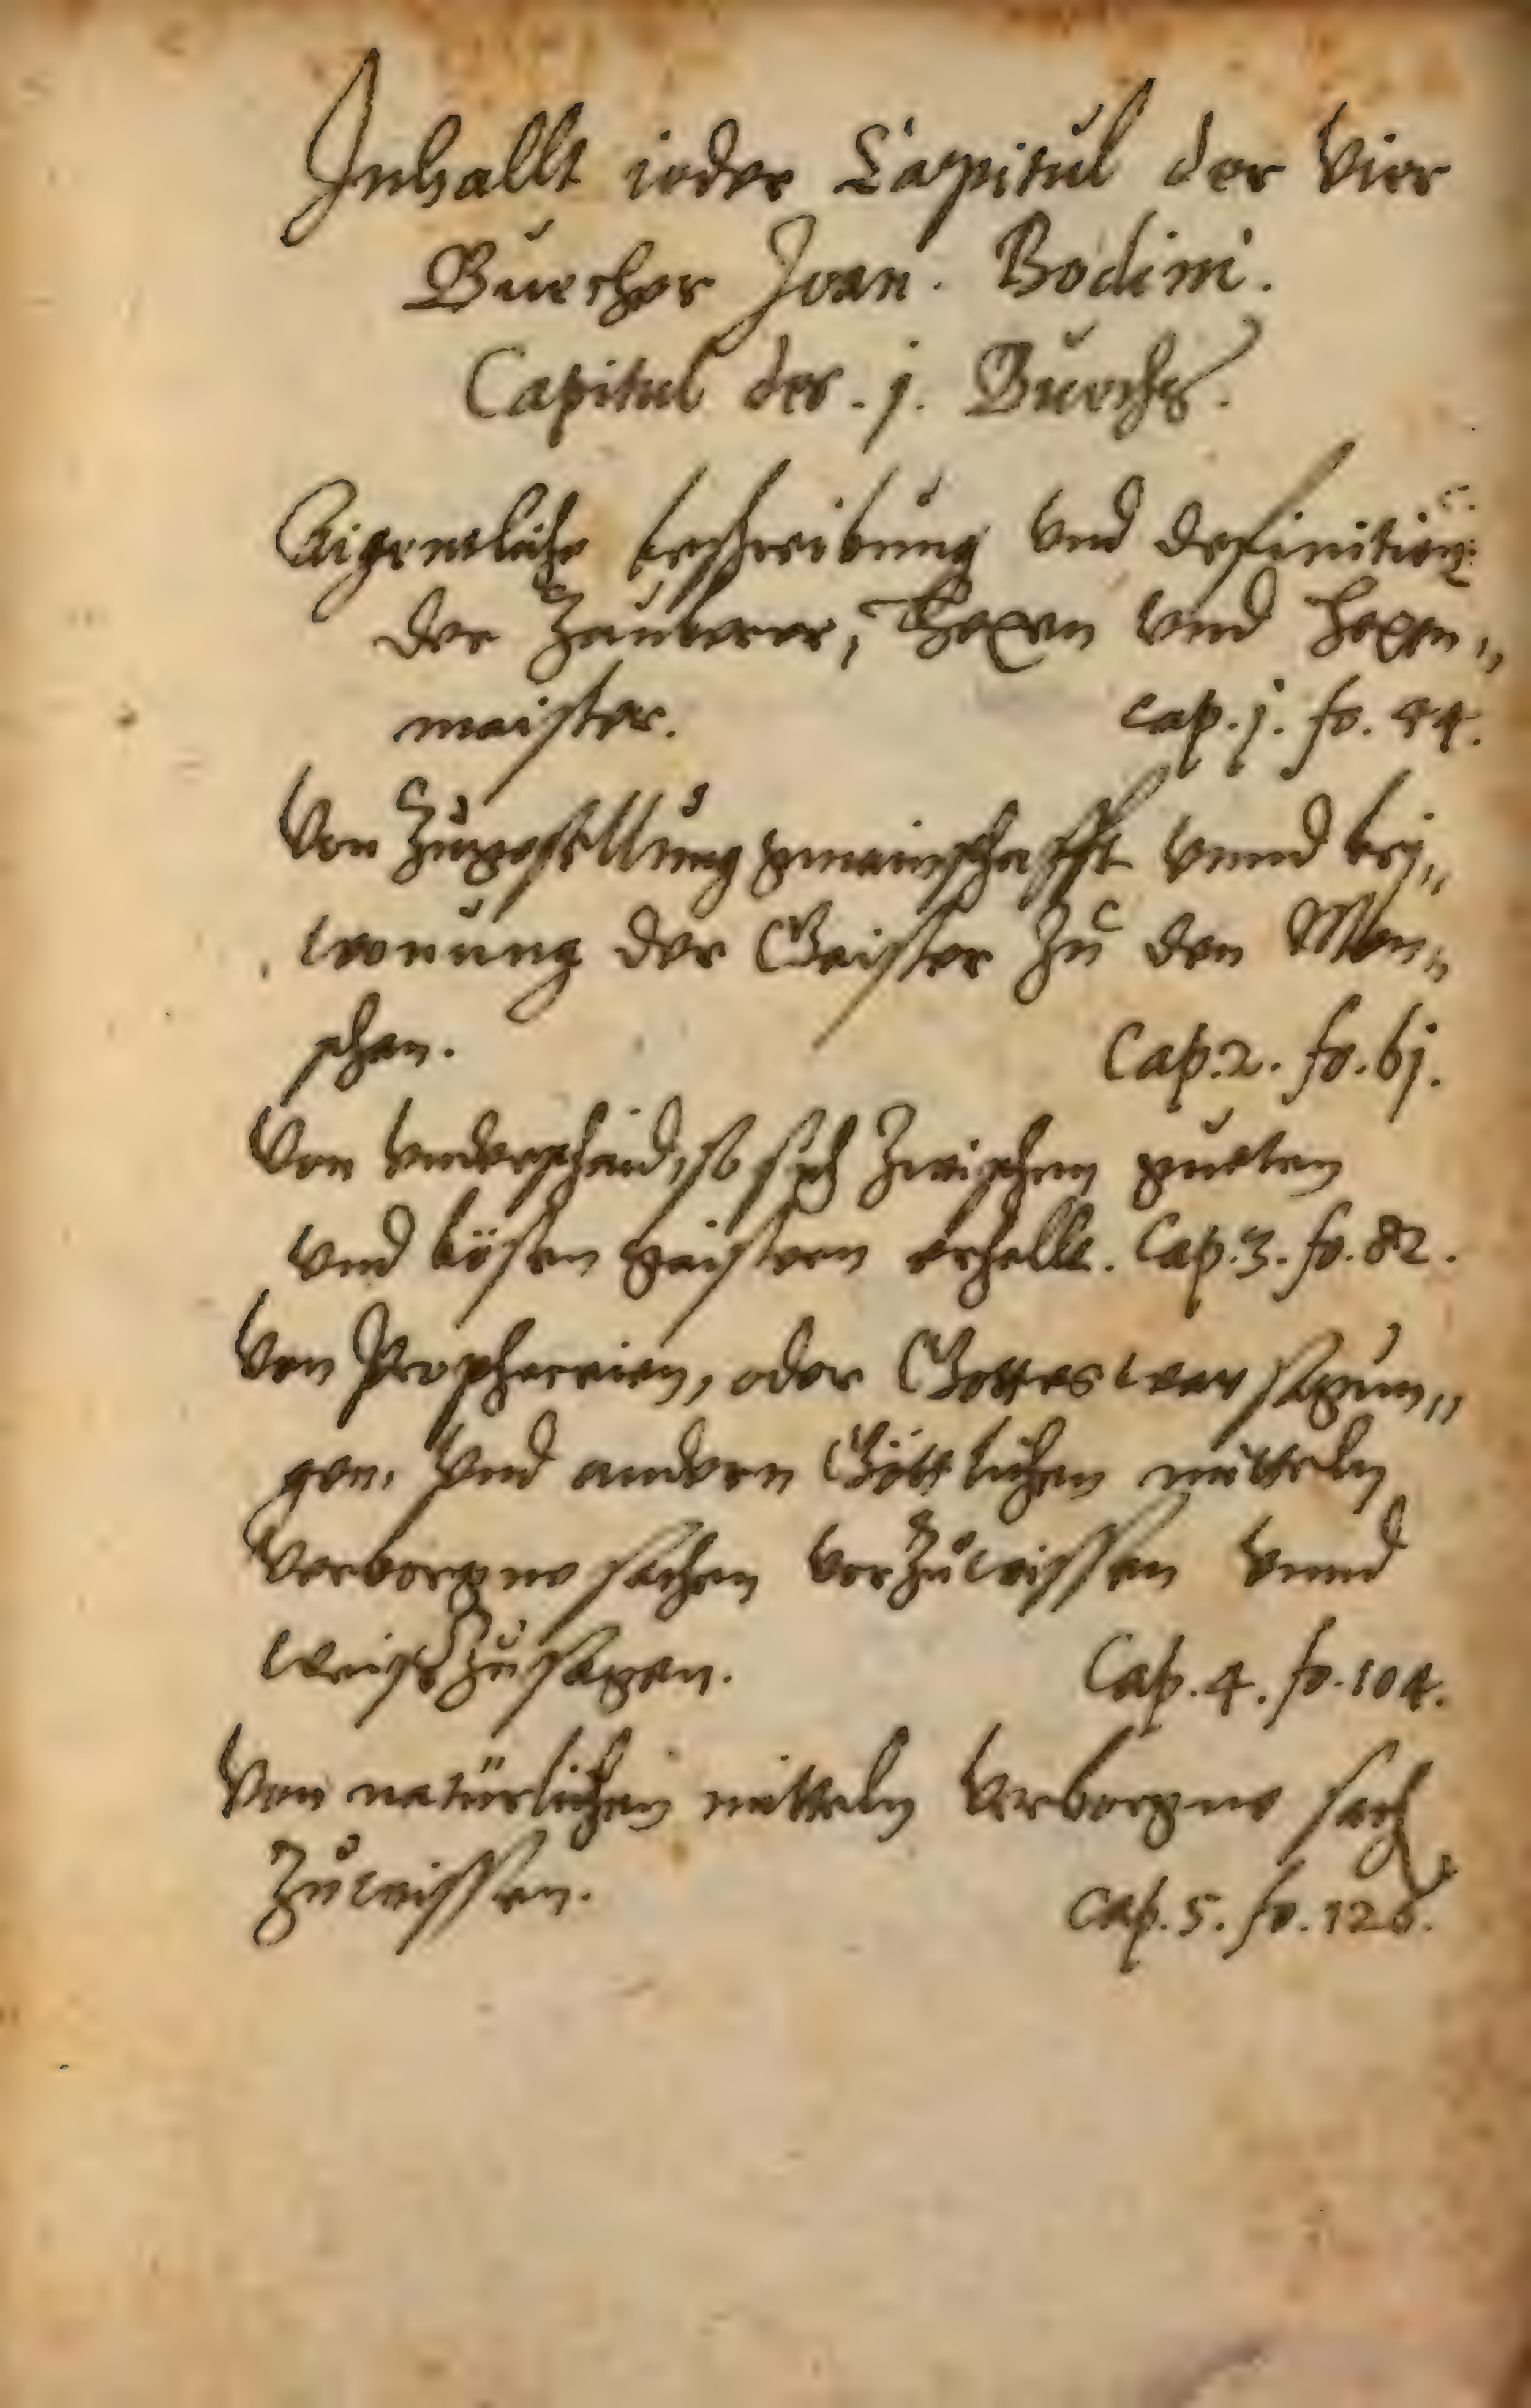 Inhallt ieder Capitul der Vier
Buecher Joan. Bodini.
Capitul des .j. Buechs.
Aigentliche beschreibung vnd definition
der Zauberer, Hexen vnd hexen„
maister. cap. j. fo. 44.
Von Zugesellung gmainschafft vnnd bey„
wonung der Geister zu den Men„
schen. Cap. 2. fo. 6j.
Von vnderschaid, so sich zwischen gueten
vnd bösen geistern erhellt. Cap. 3. fo. 82.
Von Propheceien, oder Gotteswarsagun„
gen, vnd andern Göttlichen mitteln
verborgne sachen vorzuwissen vnnd
weiszusagen. Cap. 4. fo. 104.
Von natürlichen mitteln verborgne sach
zuwissen. cap. 5. fo. 126.